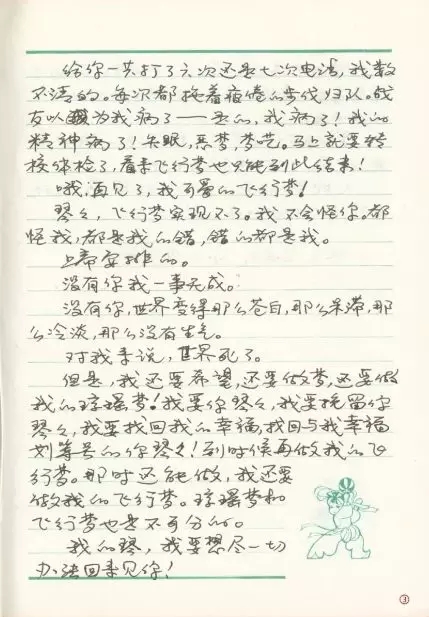 给你一共打了六次还是七次电话,我数
不清的。每次都拖着疲倦的步伐归队。战
友以为我病了——是的,我病了!我的
精神病了!失眠,恶梦,梦呓。马上就要转
校体检了,看来飞行梦也只能到此结束!
哦,再见了,我可爱的飞行梦!
琴琴,飞行梦实现不了。我不会怪你。都
怪我,都是我的错,错的都是我。
上帝安排的。
没有你我一事无成。
没有你,世界变得那么苍白,那么呆滞,那
么冷淡,那么没有生气。
对我来说,世界死了。
但是,我还要希望,还要做梦,还要做
我的琼瑶梦!我要你琴琴,我要挽留你
琴琴,我要找回我的幸福,找回与我幸福
划等号的你琴琴!到时候再做我的飞
行梦。那时还能做,我还要
做我的飞行梦。琼瑶梦和
飞行梦也是不可分的。
我的琴,我要想尽一切
办法回来见你!
③